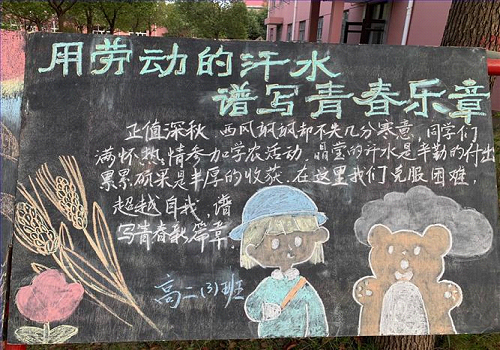 用劳动的汗水
谱写青春乐章
正值深秋，西风飒飒却不失几分寒意，同学们
满怀热情参加学农活动。晶莹的汗水是辛勤的付出
累累硕果是丰厚的收获。在这里我们克服困难，
超越自我，谱
写青春新篇章。
高二(3)班